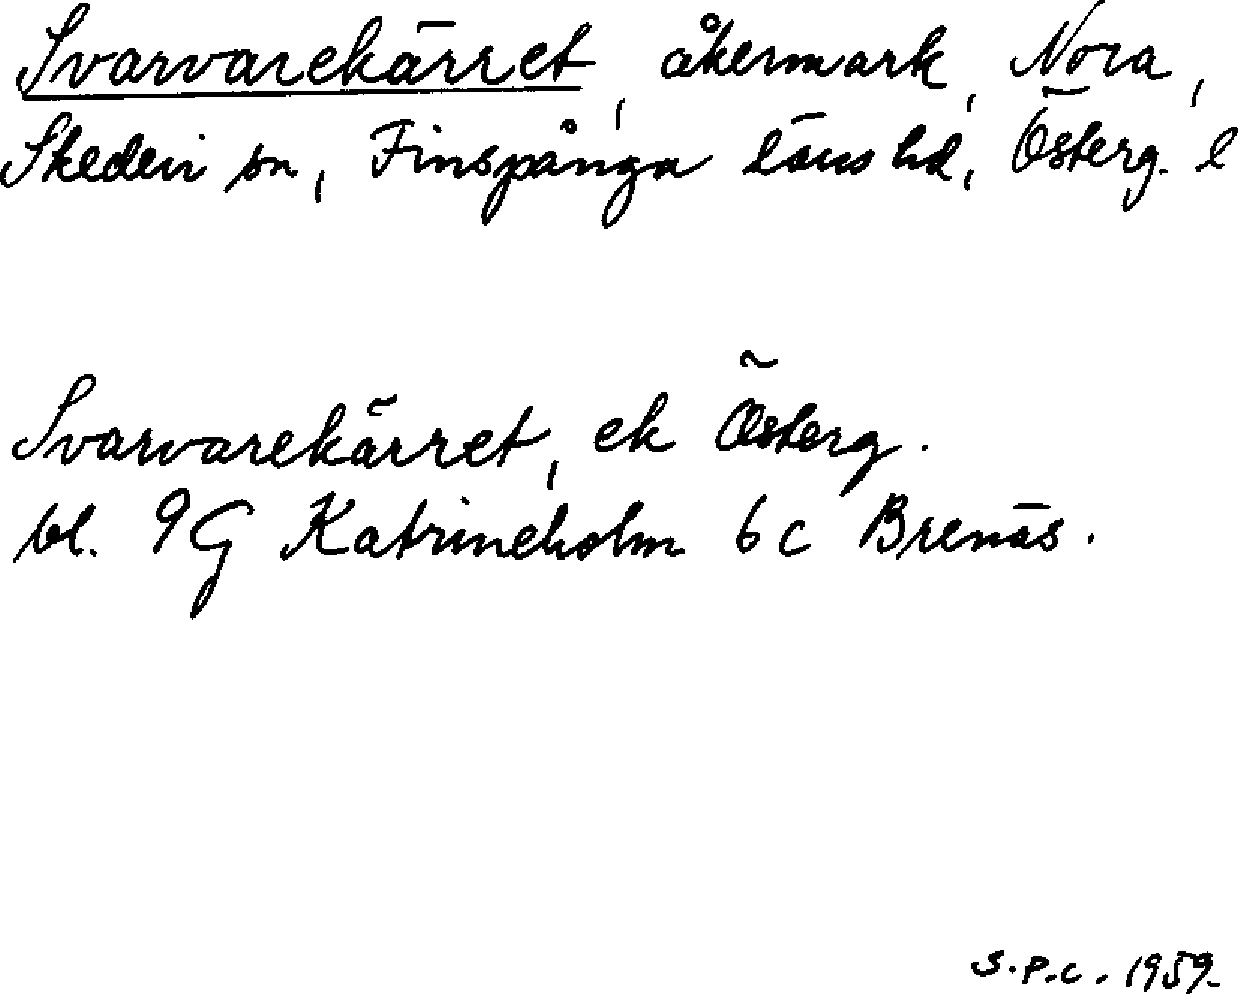 Svarvarekärret, åkermark, Nora,
Skedevi sn, Finspånga läns hd, Österg. l
Svarvarekärret, ek Österg.
bl. 9G Katrineholm 6c Brenäs.
S.P.C. 1959.